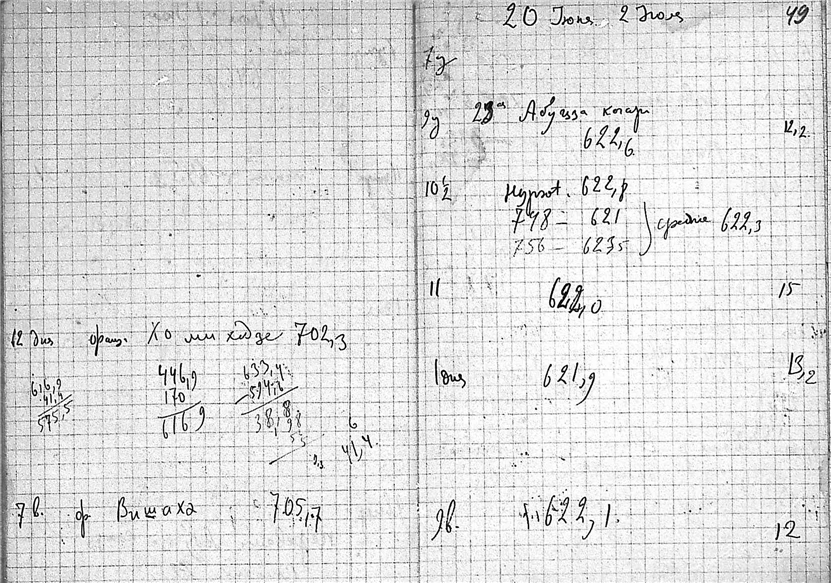 12 дня франц. Хо ми ходзе 702,3
616,9
41,4
575,5
446,9
170
616 9
633,4
594,6
38,8
1 98
55
6
41,4
7 в. ф Вишаха 705,7
20 Іюня 2 Іюля 49
7 у
9 у 23 Абуезда 622,6 12,2
10 1/2 Hypsot. 622,8
748 = 621
756 – 6235
средне 622,3
11 622,0 15
1 дня 621,9 13,2
9в. 622,1. 12